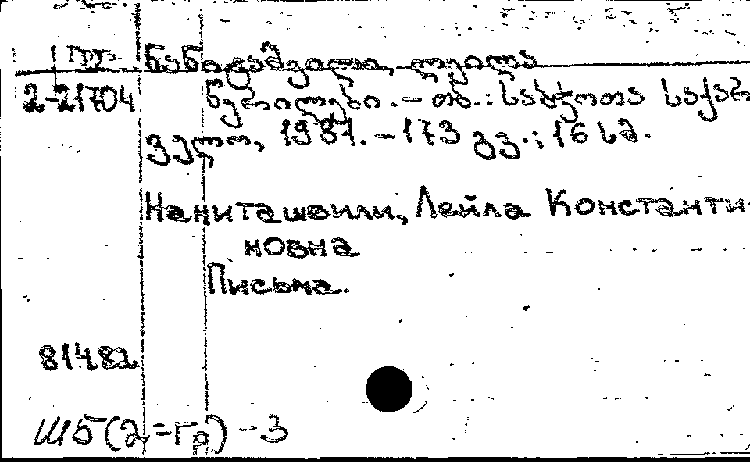 ნანიტაშვილი, ლეილა
2-21704 წერილები. – თბ.: საბჭოთა საქარ
ველო, 1981. – 173 გვ.; 16 სმ.
Наниташвили, Лейла Константи-
новна
Письма.
81482
Ш5(2=Гр) -3